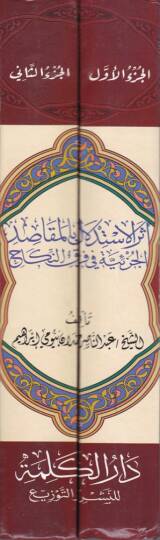 الجزء الأول
الجزء الثاني
أثر الاستدلال بالمقاصد
الجزئية في فرق النكاح
تأليف
الشيخ / عبد الناصر حمدان بيومي إبراهيم
دار الكلمة
للنشر والتوزيع